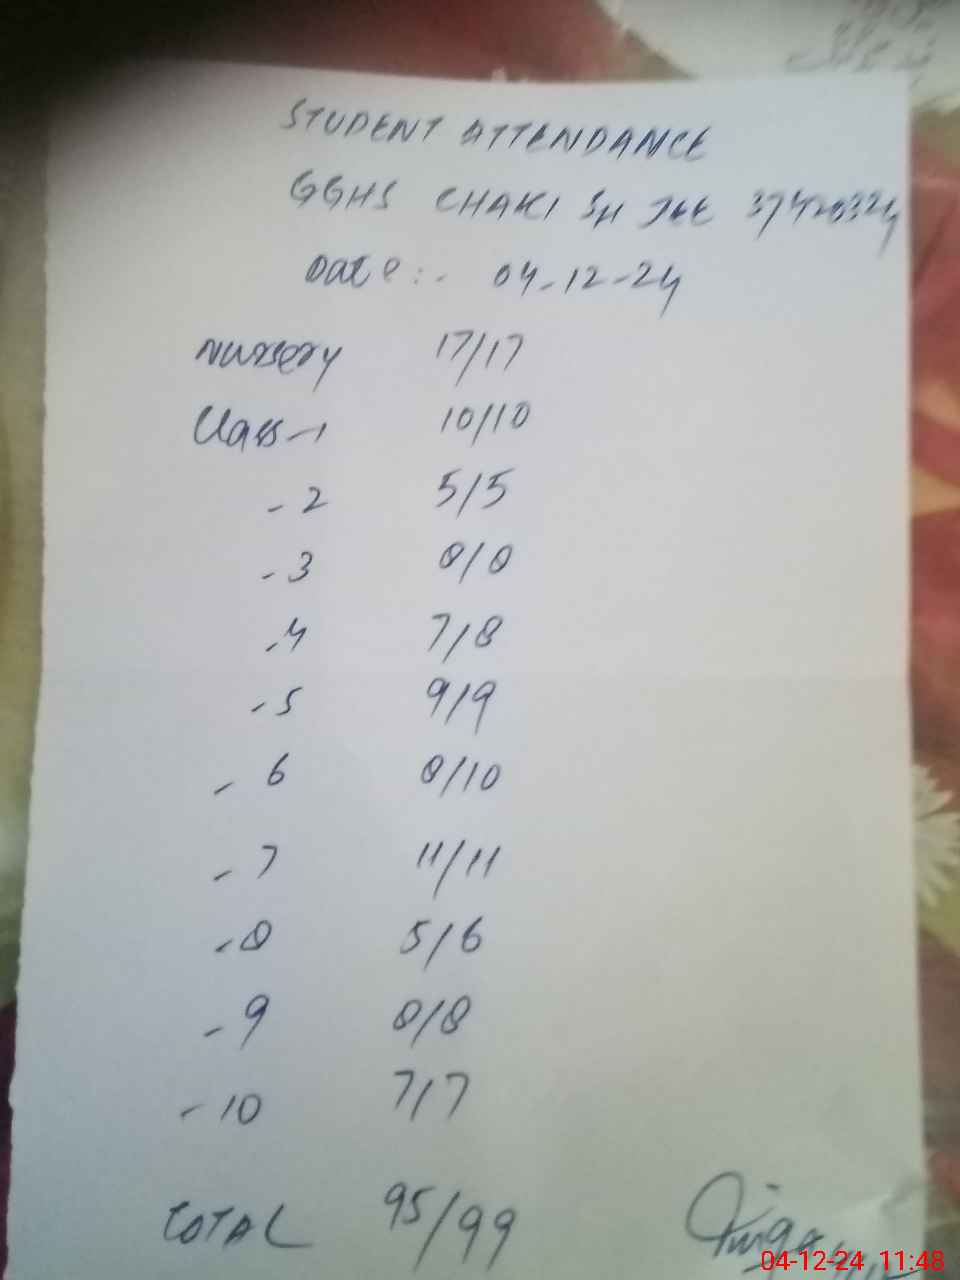 STUDENT ATTENDANCE
GGHS CHAKI SH JEE 37420324
Date:- 04-12-24
Nursery 17/17
Class-1 10/10
-2 5/5
-3 8/8
-4 7/8
-5 9/9
-6 8/10
-7 11/11
-8 5/6
-9 8/8
-10 7/7
TOTAL 95/99
04-12-24 11:48